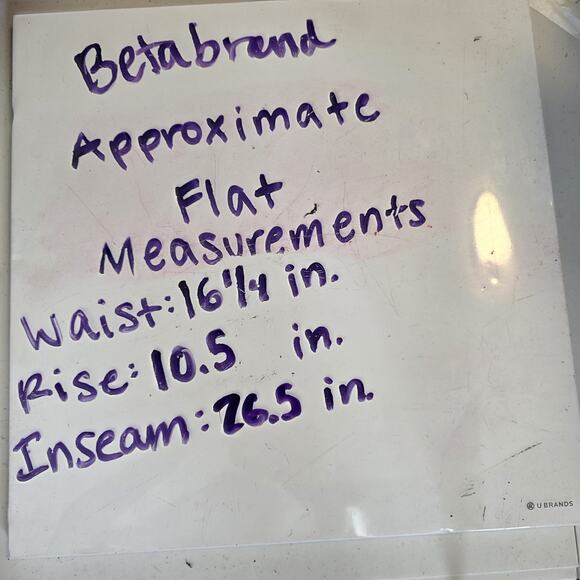 Betabrand
Approximate
Flat
Measurements
Waist: 16 1/4 in.
Rise: 10.5 in.
Inseam: 26.5 in.
U BRANDS